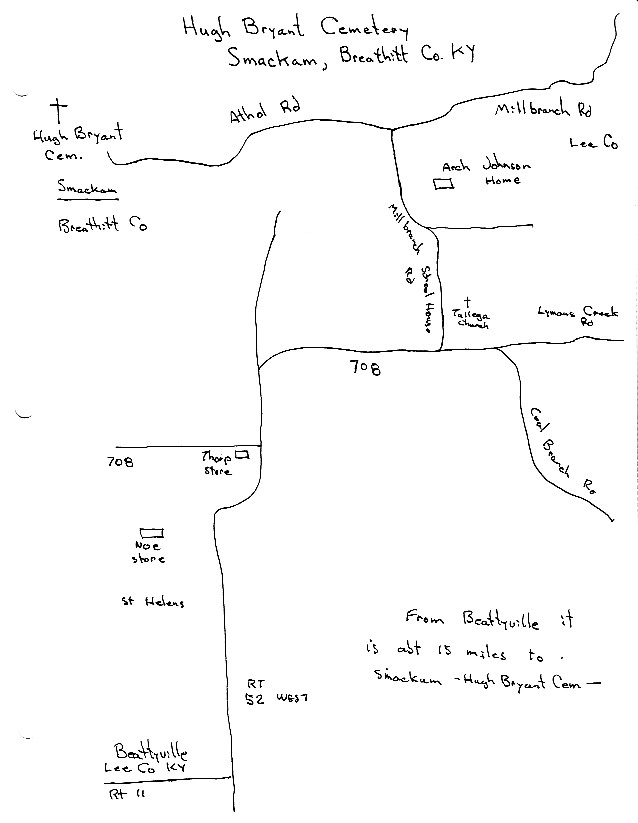 Hugh Bryant Cemetery
Smackam, Breathitt Co. KY
Athol Rd
Millbranch Rd
Hugh Bryant
Cem.
Lee Co
Arch Johnson
Home
Smackam
Breathitt Co
Millbranch School House
Rd
Tallega
Church
Lymans Creek
Rd
708
Coal Branch Rd
708
Thorp
Store
Noe
store
St Helens
From Beattyville it
is abt 15 miles to
Smackum - Hugh Bryant Cem -
RT
52 WEST
Beattyville
Lee Co KY
Rt 11